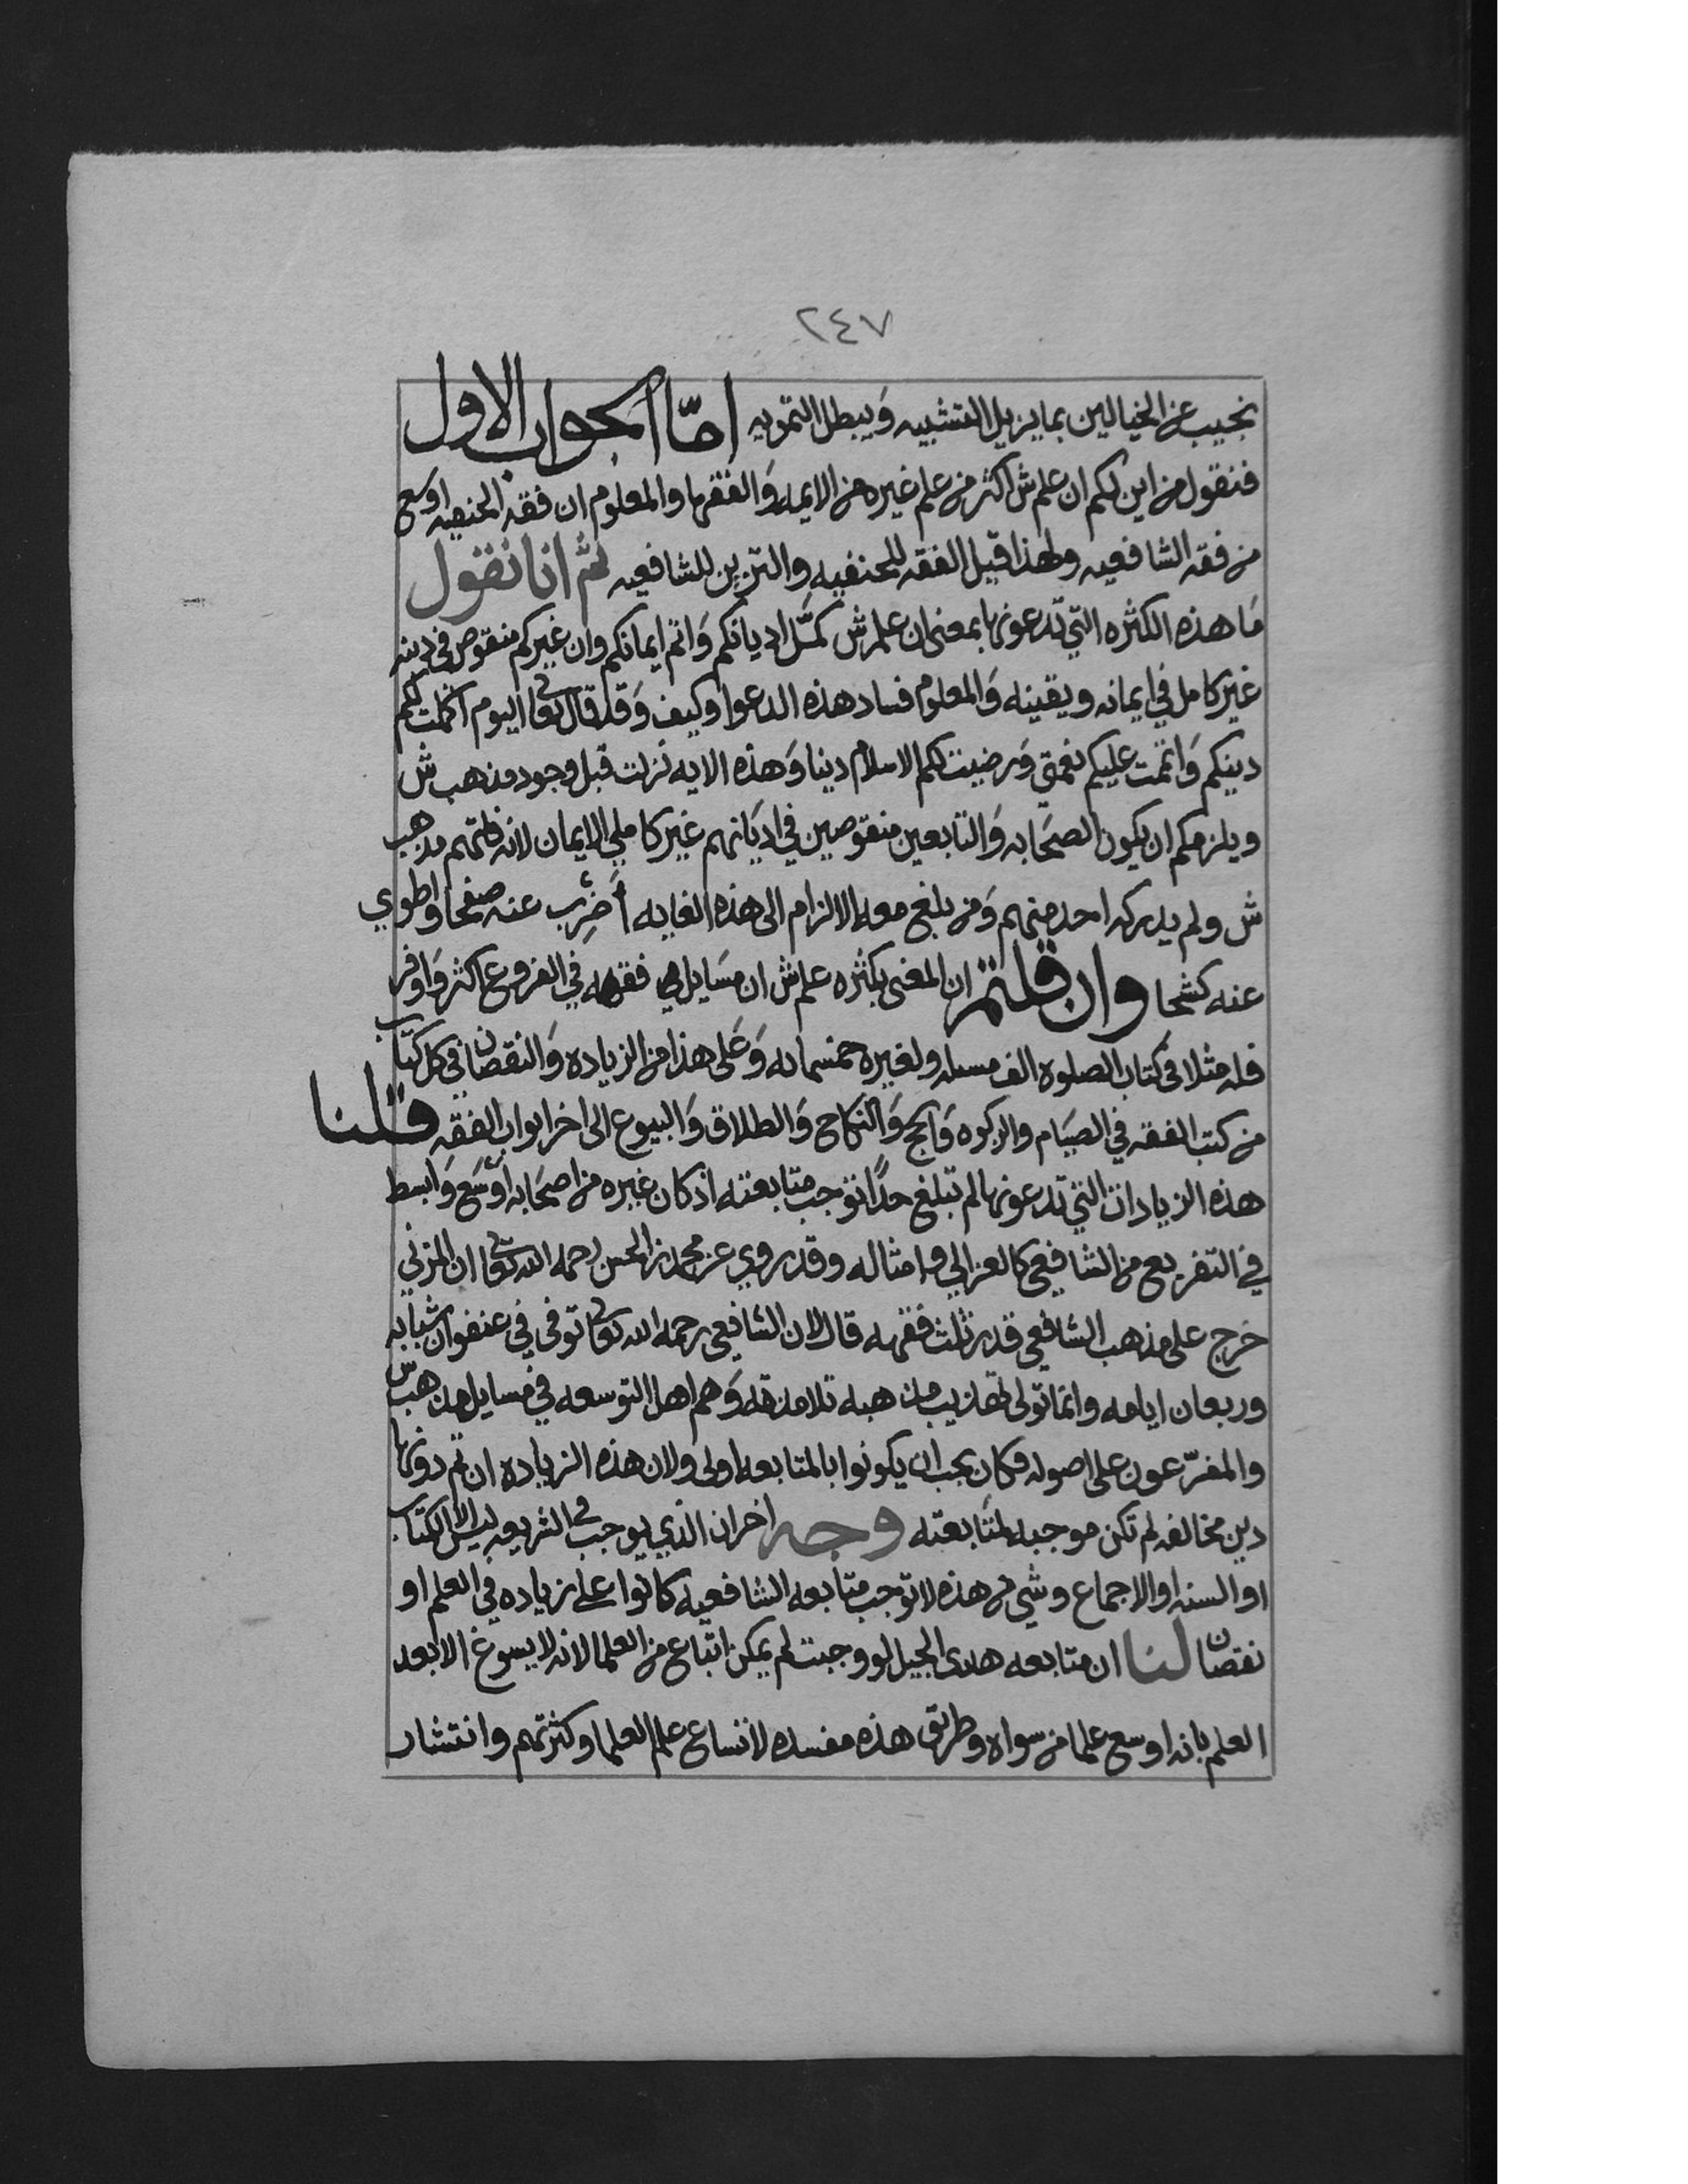 ٢٤٧
نجيب عن الخيالين بما يزيل التشبيه وَيبطل التمويه امّا الجواب الاول
فنقول من اين لكم ان علم ش اكثر من علم غيره من الايمه وَالفقها والمعلوم ان فقه الحنفيه اوسع
من فقه الشافعيه ولهذا قيل الفقه للحنفيه والتزيين للشافعيه ثم انا نقول
مَا هذه الكثره التي تدعونها بمعنى ان علم ش كمَّل اديانكم وَاتم ايمانكم وان غيركم منقوص في دينه
غير كامل في ايمانه ويقينه وَالمعلوم فساد هذه الدعوا وكيف وَقد قال تعالى اليوم اكملت لكم
دينكم وَاتممت عليكم نعمتي وَرضيت لكم الاسلام دينا وَهذه الايه نزلت قبل وجود مذهب ش
ويلزمكم ان يكون الصحَابه وَالتابعين منقوصين في اديَانهم غير كاملي الايمان لانه فاتهم مذهب
ش ولم يدركه احد منهم وَمن بلغ معه الالزام الى هذه الغايه أُضرِب عنه صفحا واطوي
عنه كشحا وان قلتم ان المعنى بكثره علم ش ان مسَايل فقهه في الفروع اكثر وَاوفر
فله مثلا في كتاب الصلوة الف مسله ولغيره خمسمايه وَعَلى هذا من الزياده وَالنقصان في كل كتاب
من كتب الفقه في الصيَام والزكوه وَالحج وَالنكاح وَالطلاق وَالبيوع الى اخر ابواب الفقه قلنا
هذه الزيادات التي تدعونها لم تبلغ حدًا توجب متابعته اذ كان غيره من اصحَابه اوسَع وَابسط
في التفريع من الشافعي كالغزالي وامثاله وقد روي عن محمد بن الحسن رحمه الله تعالى ان المزني
خرج على مذهب الشافعي قدر ثلث فقهه قال لان الشافعي رحمه الله تعالى توفى في عنفوان شبابه
وريعان ايامه وانما تولى تهذيب مذهبه تلامذته وَهم اهل التوسعه في مسايل مذهب ش
والمفرّعون على اصوله فكان يجب ان يكونوا بالمتابعه اولى ولان هذه الزياده ان تم دونها
دين مخالفه لم تكن موجبه لمتَابعته وجه اخر ان الذي يوجب في الشريعه ليس الا الكتاب
او السنه او الاجماع وشي من هذه لا توجب متابعه الشافعيه كانوا على زياده في العلم او
نقصان لنا ان متابعه هدى الجيل لو وجبت لم يمكن اتباع من العلما لانه لا يسوغ الا بعد
العلم بانه اوسع علما من سواه وطريق هذه مفسده لاتساع علم العلما وكثرتهم وانتشار